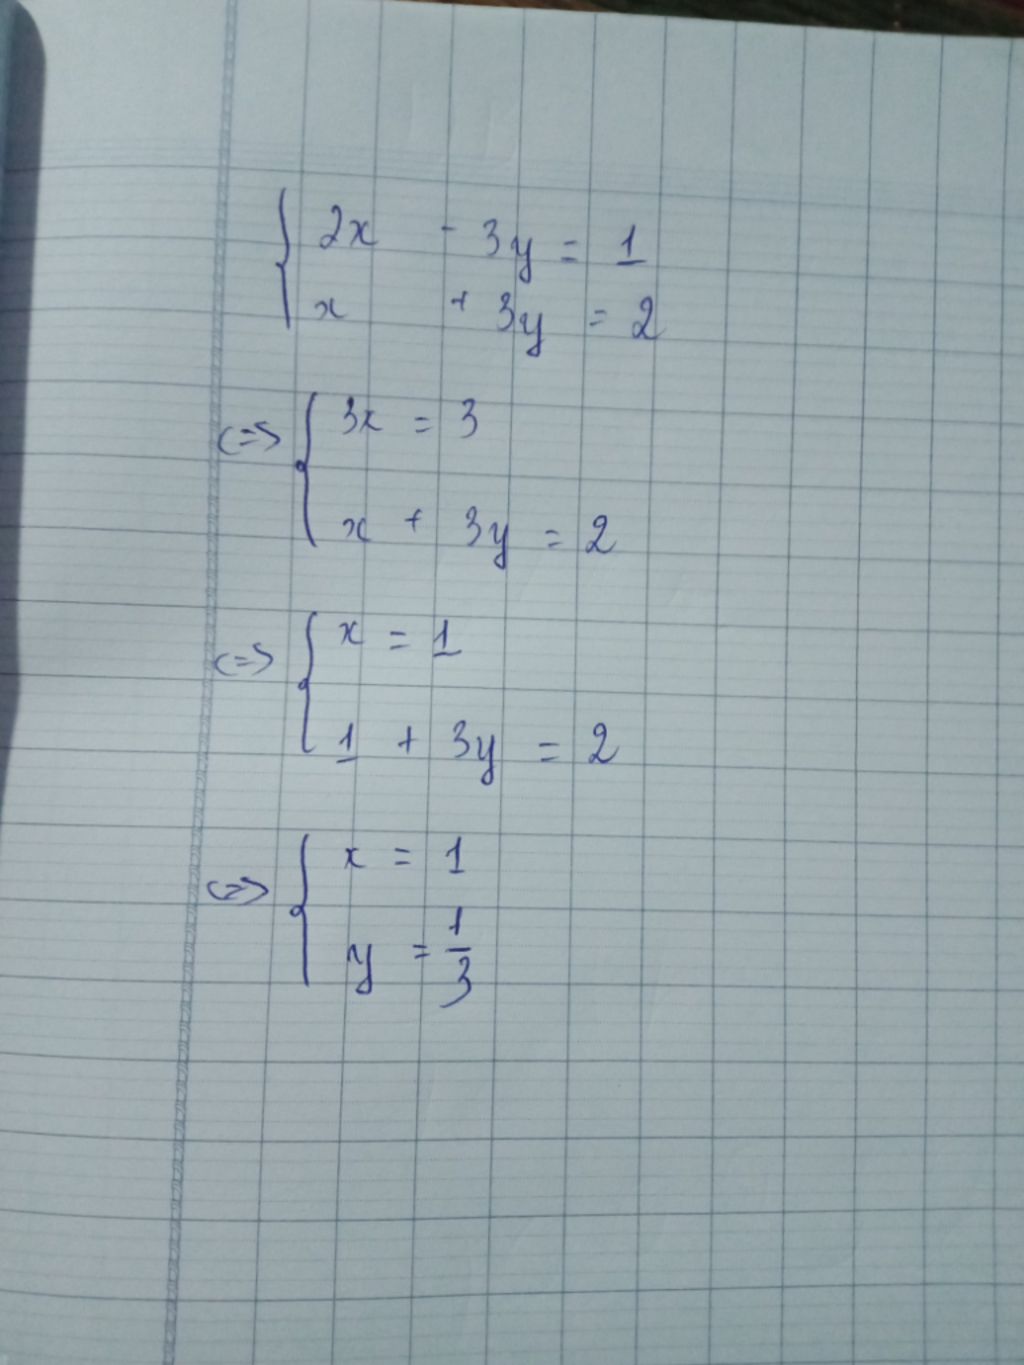 2x - 3y = 1
x + 3y = 2
<=> 3x = 3
x + 3y = 2
<=> x = 1
1 + 3y = 2
<=> x = 1
y = 1/3